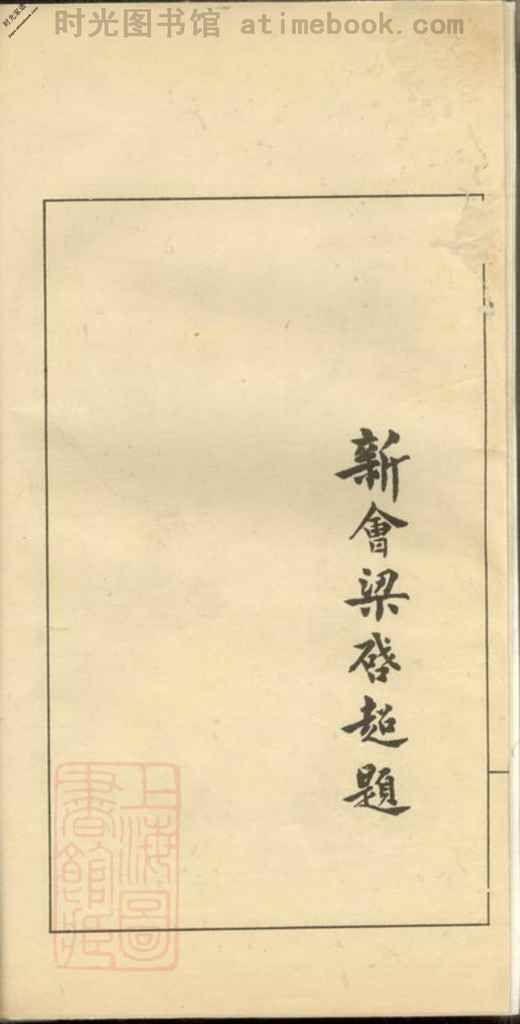 时光图书馆 atimebook.com
新會梁啓超題
上海圖
書館藏